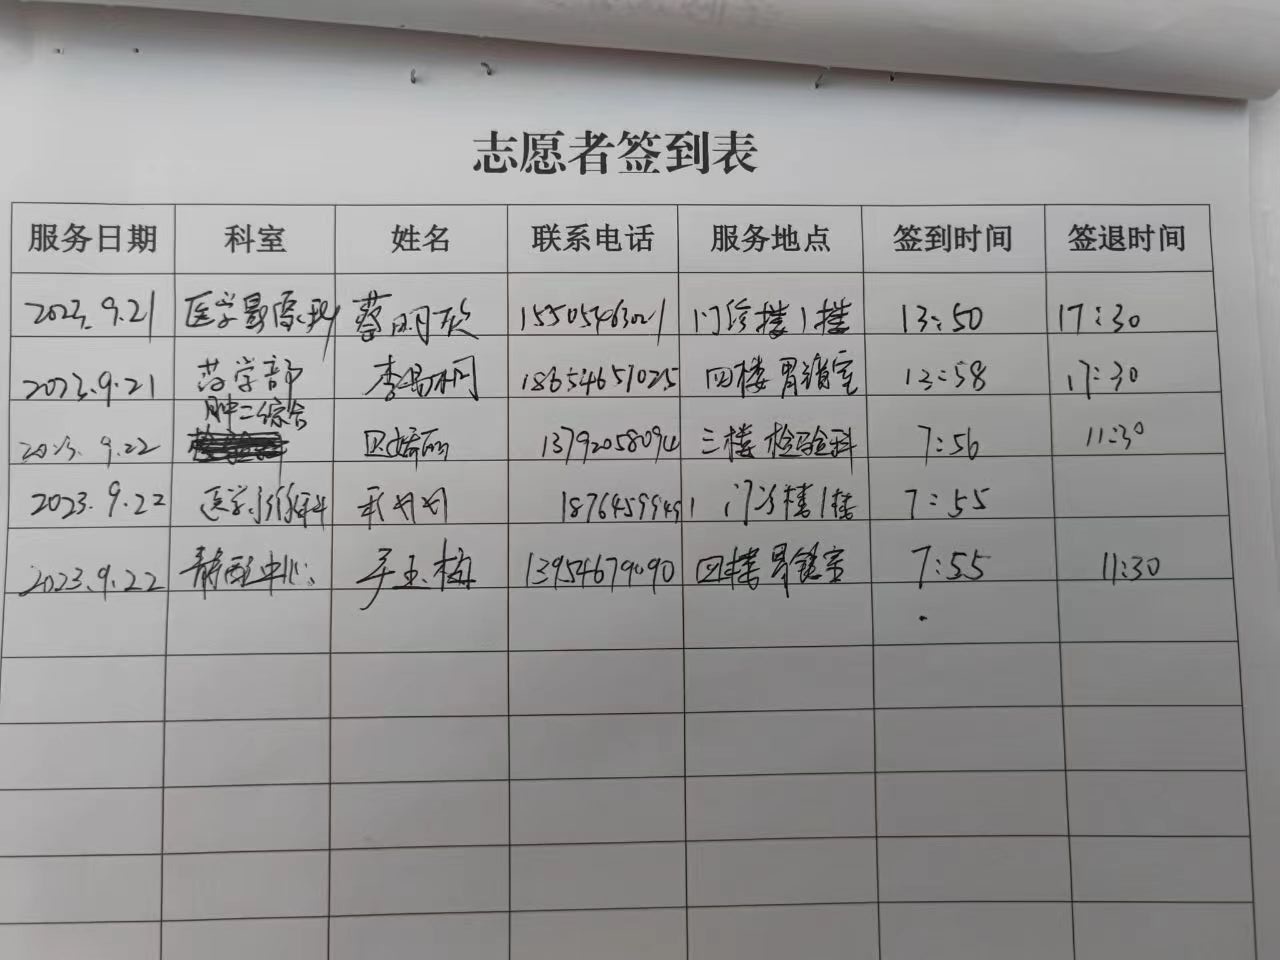 志愿者签到表
服务日期 科室 姓名 联系电话 服务地点 签到时间 签退时间
2023.9.21 医学影像科 蔡明欣 15505463021 门诊楼1楼 13:50 17:30
2023.9.21 药学部 李 18654657025 四楼胃镜室 13:58 17:30
肿二综合
2023.9.22 三楼检验科 7:56 11:30
2023.9.22 医学影像科 18764599491 门诊楼1楼 7:55
2023.9.22 静配中心 玉梅 13954679090 四楼胃镜室 7:55 11:30